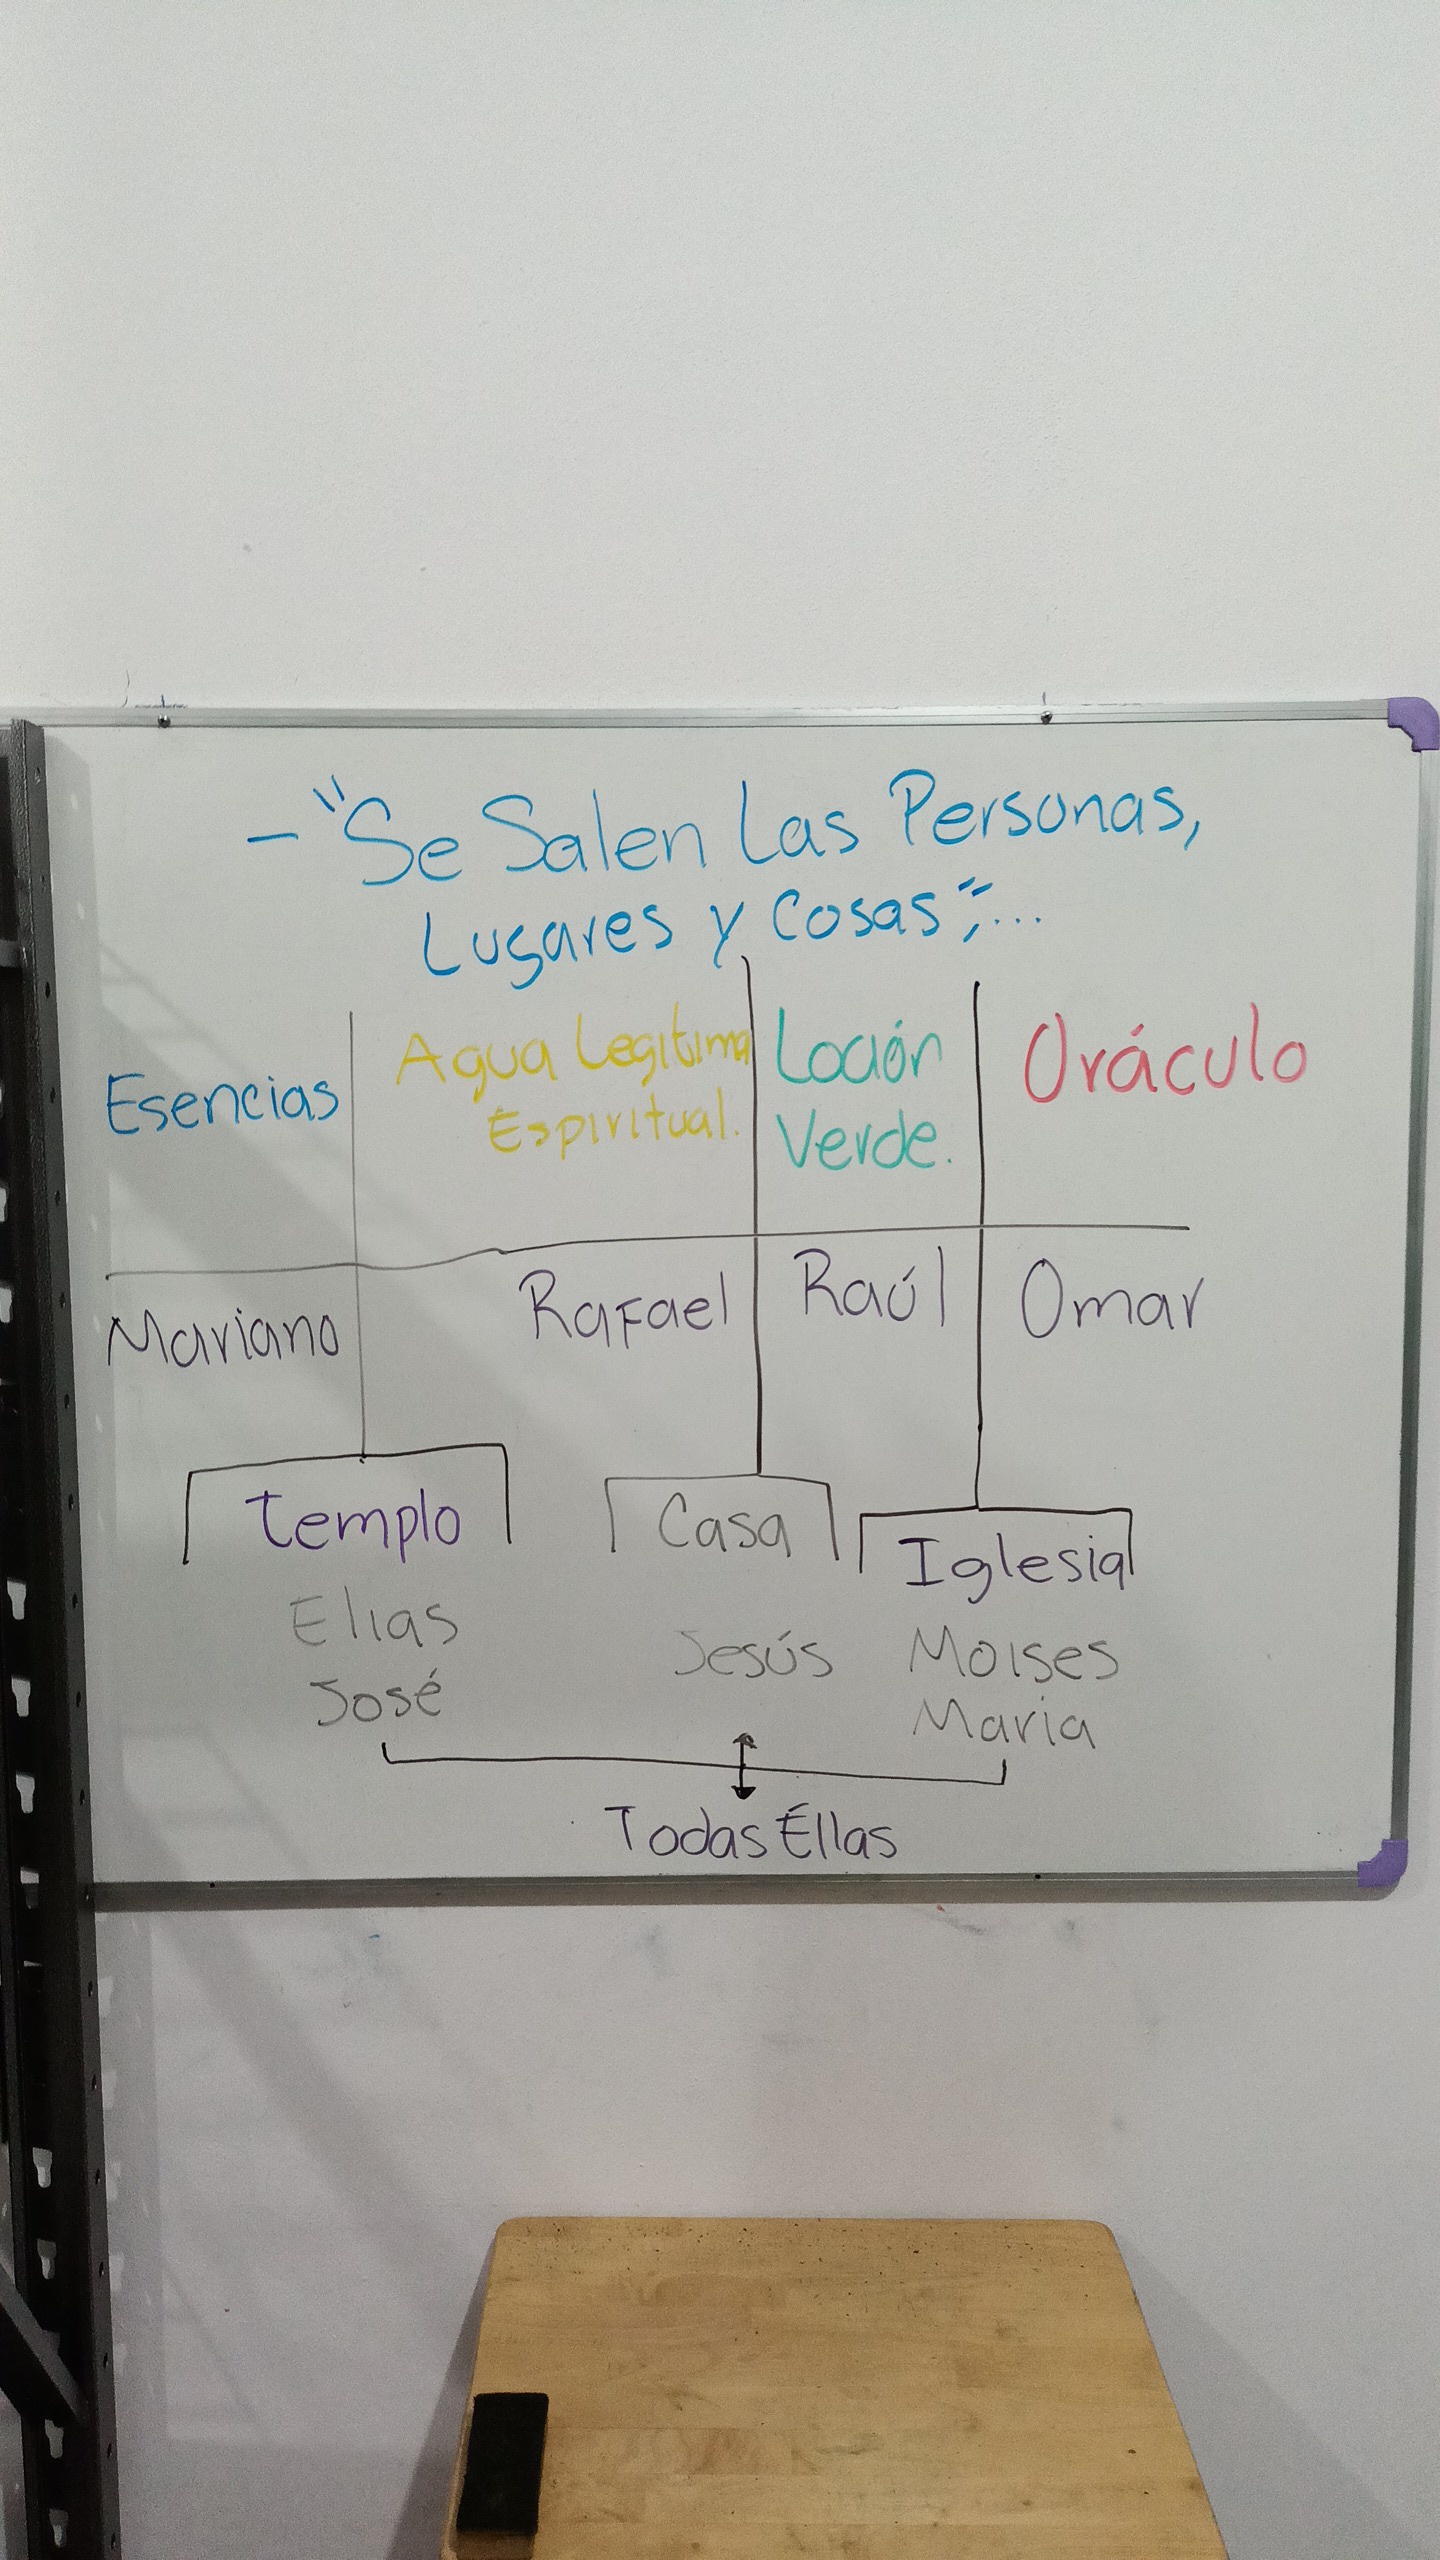 - "Se Salen Las Personas,
Lugares y Cosas";...
Esencias
Agua Legitima
Espiritual.
Loción
Verde.
Oráculo
Mariano
Rafael
Raúl
Omar
Templo
Casa
Iglesia
Elias
José
Jesús
Moises
Maria
Todas Éllas